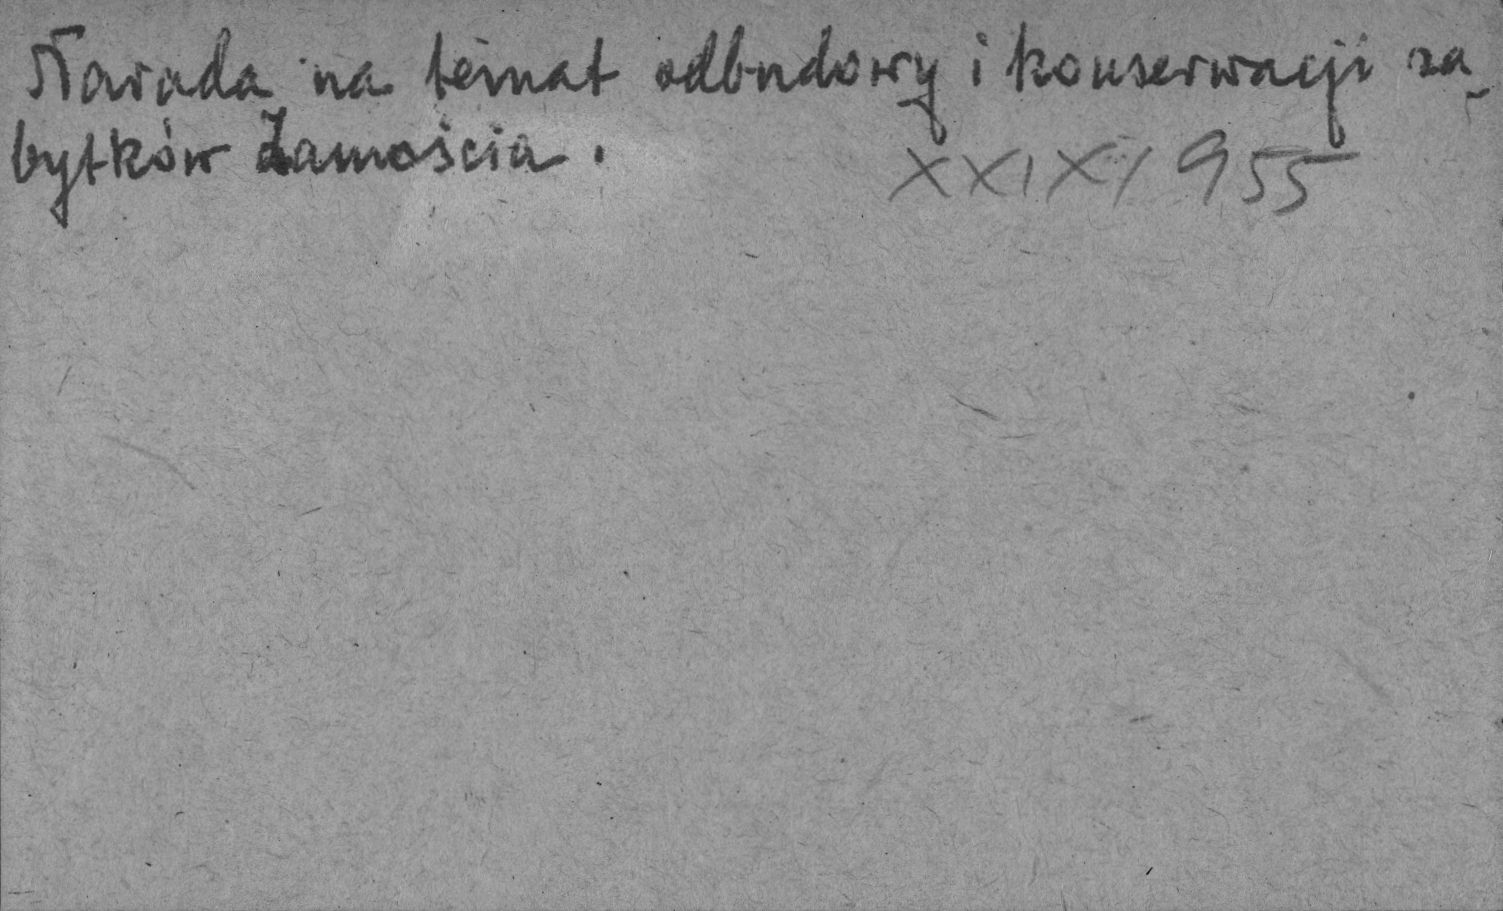 Narada na temat odbudowy i konserwacji za-
bytków Zamościa.
XXIX/955